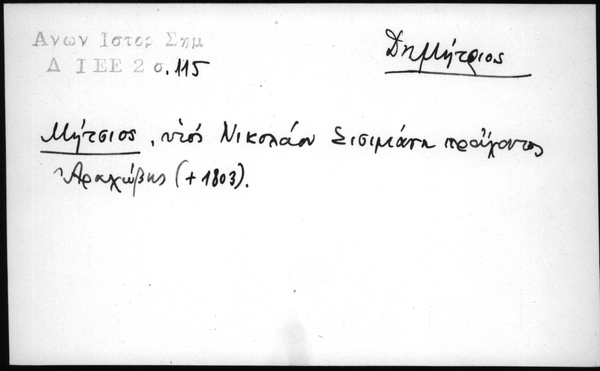 Ανων Ιστορ Σημ
Δ Ι Ε Ε 2 σ. 115
Δημήτριος
Μήτσιος, υἱός Νικολάου Σισιμιάνη προὔχοντος
Ἀραχώβης (+ 1803).